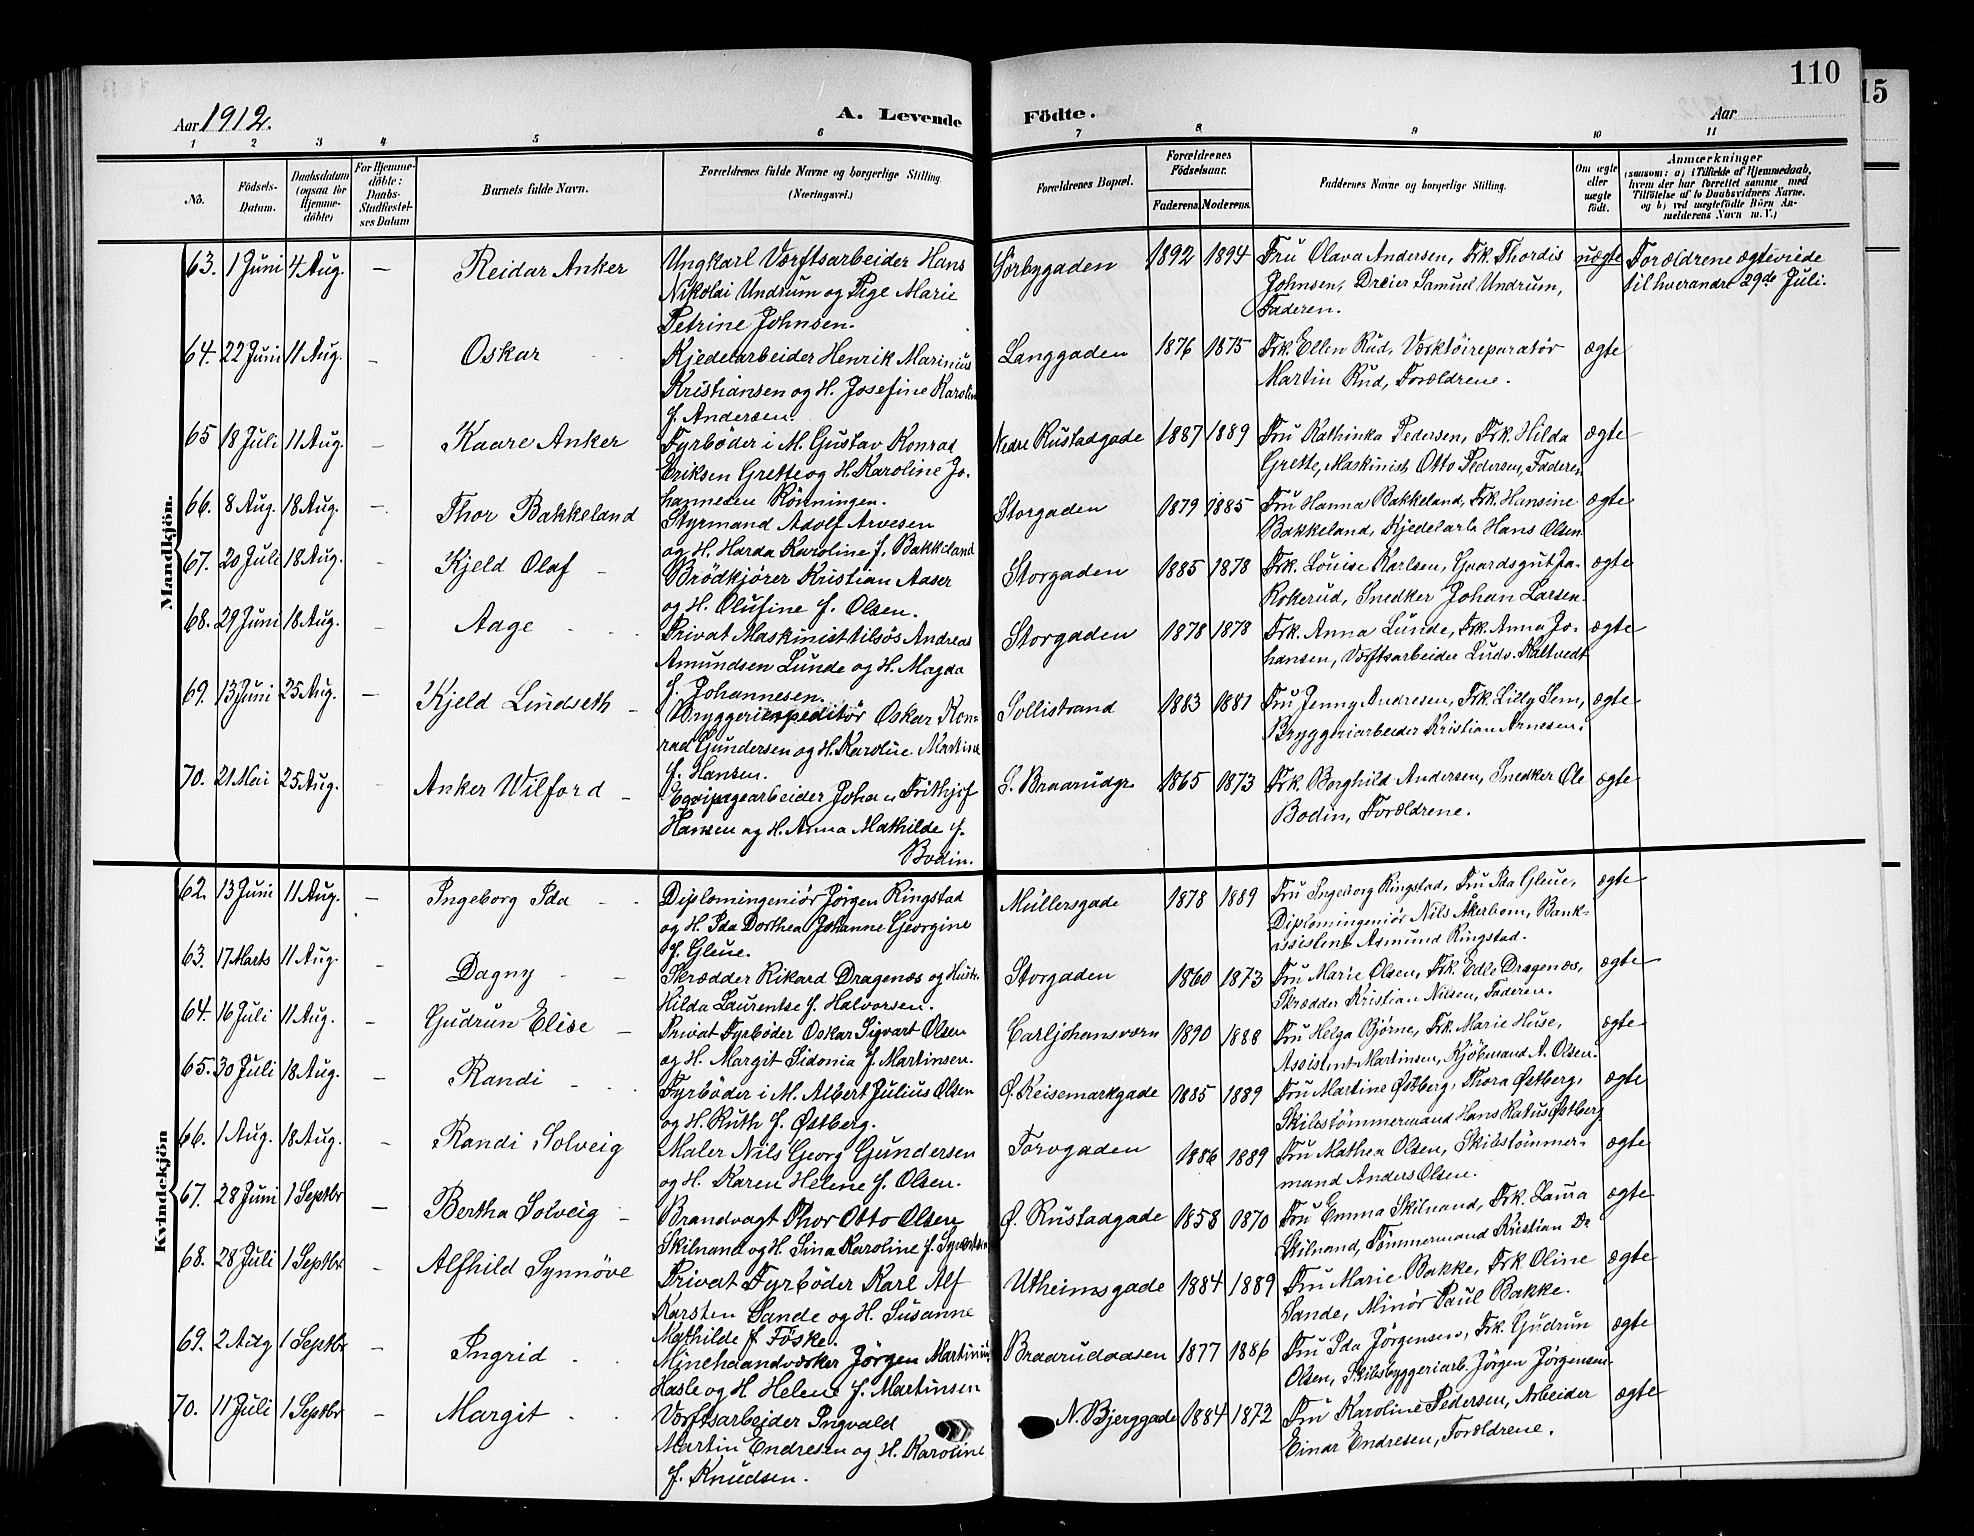 110
15
Aar 1912.
A. Levende Födte.
Aar
1 2 3 4 5 6 7 8 9 10 11
No.
Födsels-Datum.
Daabsdatum (ogsaa for Hjemme-döbte)
For Hjemme-döbte: Daabs-Stadfæstel-ses Datum
Barnets fulde Navn.
Forældrenes fulde Navne og borgerlige Stilling. (Næringsvei.)
Forældrenes Bopæl.
Forældrenes Födselsaar.
Faderens. Moderens.
Faddernes Navne og borgerlige Stilling.
Om ægte eller uægte födt.
Anmærkninger
(saasom: a) i Tilfælde af Hjemmedaab,
hvem der har forrettet samme med
Tilföielse af to Daabsvidners Navne.
og b) ved uægtefödte Börn An-
melderens Navn m. V.)
Mandkjön.
63. 1 Juni 4 Aug. — Reidar Anker
Ungkarl Værftsarbeider Hans
Nikolai Undrum og Pige Marie
Petrine Johnsen.
Sørbygaden 1892 1894
Fru Olava Andersen, Frk. Thordis
Johnsen, Dreier Samuel Undrum,
Faderen.
uægte
Forældrene ægteviede
til hverandre 29de Juli.
64. 22 Juni 11 Aug. — Oskar
Kjedelarbeider Henrik Marinius
Kristiansen og H. Josefine Karoline
f. Andersen.
Langgaden 1876 1875
Frk. Ellen Rud, Værktöireparatør
Martin Rud, Forældrene.
ægte
65 18 Juli 11 Aug. — Kaare Anker
Fyrböder i M. Gustav Konrad
Eriksen Grette og H. Karoline Jo-
hannedea Rönningen.
Nedre Rustadgade 1887 1889
Fru Kathinka Pedersen, Frk. Hilda
Grette, Maskinist Otto Pedersen, Faderen
ægte
66. 8 Aug. 18 Aug. — Thor Bakkeland
Styrmand Adolf Arvesen
og H. Harda Karoline f. Bakkeland
Storgaden 1879 1885
Fru Hanna Bakkeland, Frk. Hansine
Bakkeland, Kjedelarb. Hans Olsen
ægte
67. 20 Juli 18 Aug. — Kjeld Olaf
Brödkjörer Kristian Aaser
og H. Olufine f. Olsen.
Storgaden 1885 1878
Frk. Louise Karlsen, Gaardsgut Ja.
Rokerud, Snedker Johan Larsen.
ægte
68. 29 Juni 18 Aug. — Aage
Privat Maskinist tilsøs Andreas
Amundsen Lunde og H. Magda
f. Johannesen.
Storgaden 1878 1878
Frk. Anna Lunde, Frk. Anna Jo-
hansen, Værftsarbeider Ludv. Haltvedt
ægte
69. 13 Juni 25 Aug. — Kjeld Lindseth
Bryggeriexpeditör Oskar Kon-
rad Gundersen og H. Karoline Martine
f. Hansen.
Sollistrand 1883 1881
Fru Jenny Andresen, Frk. Lilly Sem,
Bryggeriarbeider Kristian Arnesen.
ægte
70. 21 Mai 25 Aug. — Anker Wilford
Eqvipagearbeider Johan Frithjof
Hansen og H. Anna Mathilde f.
Bodin.
S. Braarudgr. 1865 1873
Frk. Borghild Andersen, Snedker Ole
Bodin, Forældrene.
ægte
Kvindekjön
62. 13 Juni 11 Aug. — Ingeborg Ida
Diplomingeniör Jörgen Ringstad
og H. Ida Dorthea Johanne Georgine
f. Gleue.
Müllersgade 1878 1889
Fru Ingeborg Ringstad, Fru Ida Gleue,
Diplomingeniör Nils Åkerbom, Bank-
assistent Asmund Ringstad.
ægte
63. 17 Marts 11 Aug. — Dagny
Skrædder Rikard Dragenæs og Hustr.
Hilda Laurentse f. Halvorsen.
Storgaden 1860 1873
Fru Marie Olsen, Frk. Edle Dragenæs,
Skrædder Kristian Nilsen, Faderen.
ægte
64. 16 Juli 11 Aug. — Gudrun Elise
Privat Fyrböder Oskar Sigvart Olsen
og H. Margit Sidonia f. Martinsen.
Carljohansværn 1890 1888
Fru Helga Bjørne, Frk. Marie Huse,
Assistent Martinsen, Kjöbmand A. Olsen.
ægte
65. 30 Juli 18 Aug. — Randi
Fyrböder i M. Albert Julius Olsen
og H. Ruth f. Østberg.
Ø. Keisemarkgade 1885 1889
Fru Martine Østberg, Thora Østberg,
Skibstömmermand Hans Ratus Østberg
ægte
66. 1 Aug. 18 Aug. — Randi Solveig
Maler Nils Georg Gundersen
og H. Karen Helene f. Olsen.
Torvgaden 1886 1889
Fru Mathea Olsen, Skibstömmer-
mand Anders Olsen.
ægte
67. 28 Juni 1 Septbr — Bertha Solveig
Brandvagt Thor Otto Olsen
Skilnand og H. Sina Karoline f. Syvertsen
Ø. Rustadgade 1858 1870
Fru Emma Skilnand, Frk. Laura
Skilnand, Tömmermand Kristian Dr
ægte
68. 28 Juli 1 Septbr. — Alfhild Synnöve
Privat Fyrböder Karl Alf
Karsten Sande og H. Susanne
Mathilde f. Föske.
Utheimsgade 1884 1889
Fru Marie Bakke, Frk. Oline
Sande, Minör Paul Bakke.
ægte
69. 2 Aug 1 Septbr — Ingrid
Minehaandværker Jörgen Martinius
Hasle og H. Helene f. Martinsen
Braarudaasen 1877 1886
Fru Ida Jörgensen, Frk. Gudrun
Olsen, Skibsbyggeriarb. Jörgen Jörgensen.
ægte
70. 11 Juli 1 Septbr — Margit
Værftsarbeider Ingvald
Martin Endresen og H. Karoline
f. Knudsen.
N. Bjerggade 1884 1872
Fru Karoline Pedersen, Arbeider
Einar Endresen, Forældrene.
ægte